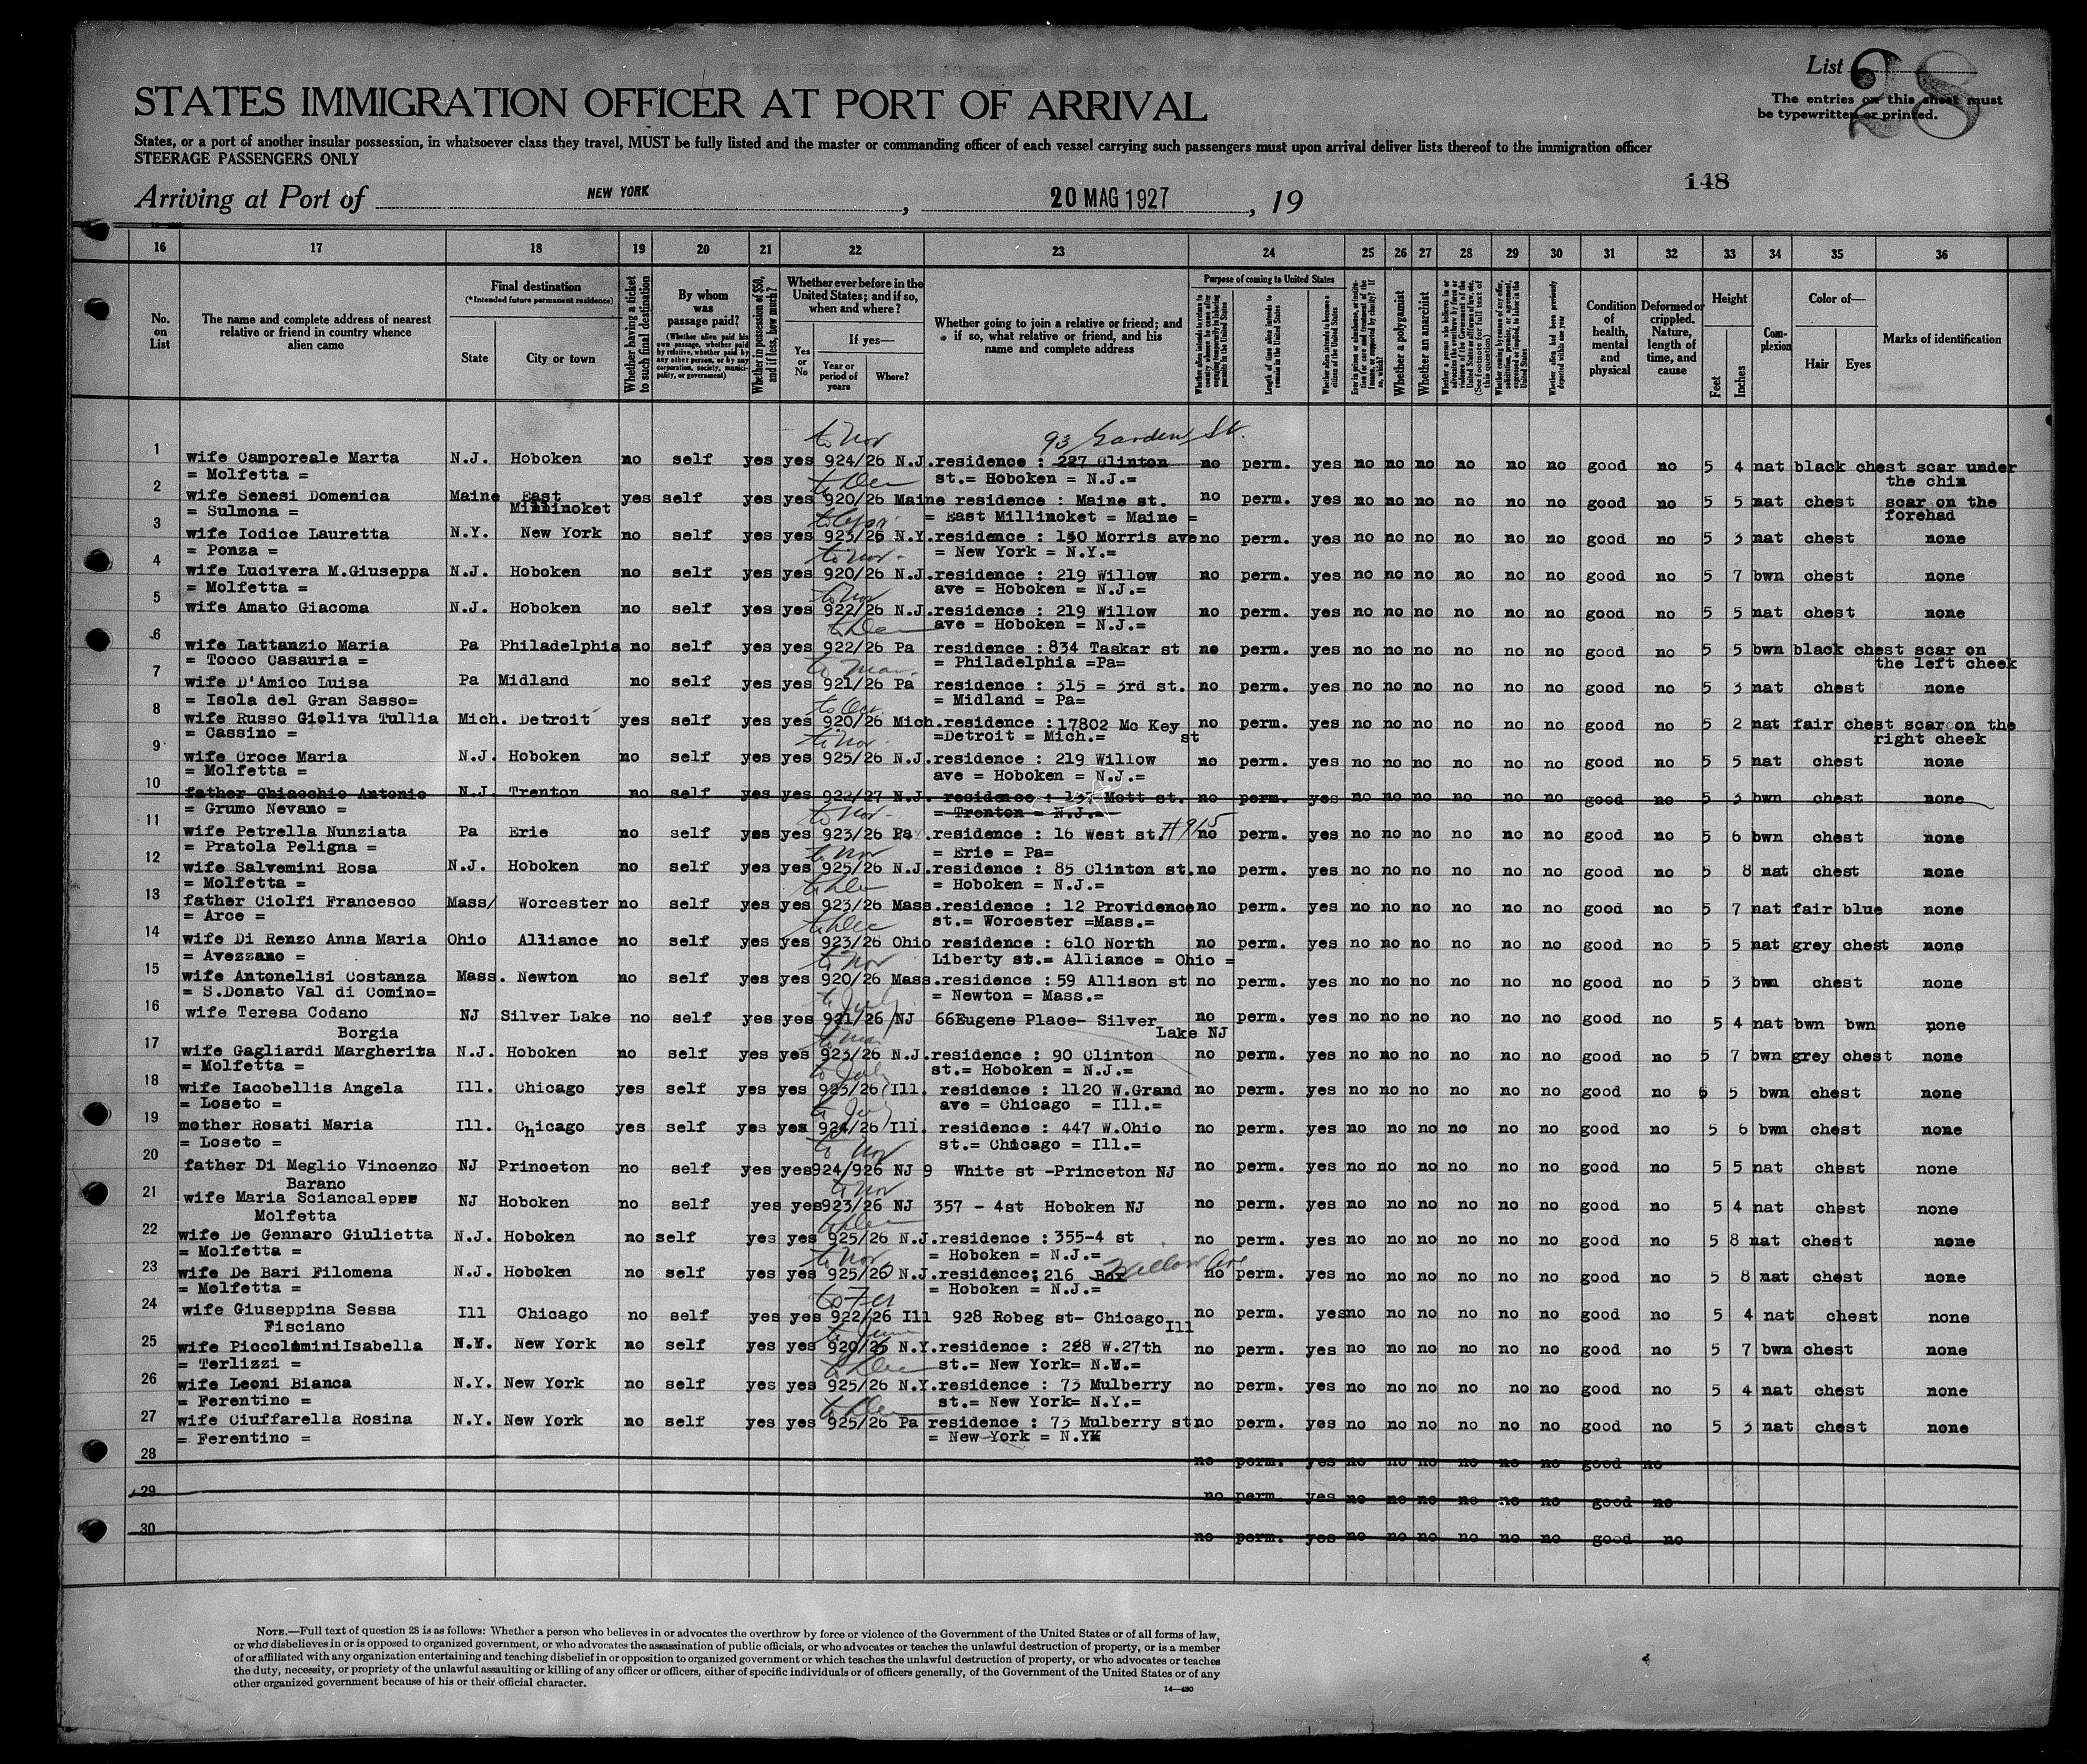 List
28
The entries on this sheet must
be typewritten or printed.
STATES IMMIGRATION OFFICER AT PORT OF ARRIVAL
States, or a port of another insular possession, in whatsoever class they travel, MUST be fully listed and the master or commanding officer of each vessel carrying such passengers must upon arrival deliver lists thereof to the immigration officer
STEERAGE PASSENGERS ONLY
148
Arriving at Port of NEW YORK, 20 MAG 1927, 19
16 17 18 19 20 21 22 23 24 25 26 27 28 29 30 31 32 33 34 35 36
No. on List
The name and complete address of nearest relative or friend in country whence alien came
Final destination (*Intended future permanent residence)
State
City or town
Whether having a ticket to such final destination
By whom was passage paid? (Whether alien paid his own passage, whether paid by relative, whether paid by any other person, or by any corporation, society, municipality, or government)
Whether in possession of $50, and if less, how much?
Whether ever before in the United States; and if so, when and where?
Yes or No
If yes—
Year or period of years
Where?
Whether going to join a relative or friend; and if so, what relative or friend, and his name and complete address
Purpose of coming to United States
Length of time alien intends to remain in the United States
Whether alien intends to become a citizen of the United States
Whether a polygamist
Whether an anarchist
Condition of health, mental and physical
Deformed or crippled. Nature, length of time, and cause
Height
Feet
Inches
Complexion
Color of—
Hair
Eyes
Marks of identification
to Nov 93 Garden St.
1 wife Camporeale Marta N.J. Hoboken no self yes yes 924/26 N.J. residence : 227 Clinton no perm. yes no no no no no no good no 5 4 nat black chest scar under
= Molfetta = st.= Hoboken = N.J.= the chin
to Dec
2 wife Senesi Domenica Maine East yes self yes yes 920/26 Maine residence : Maine st. no perm. yes no no no no no no good no 5 5 nat chest scar on the
= Sulmona = Millinoket = East Millinoket = Maine = forehad
3 wife Iodice Lauretta N.Y. New York no self yes yes 923/26 N.Y. residence : 150 Morris ave no perm. yes no no no no no no good no 5 3 nat chest none
= Ponza = = New York = N.Y.=
to Nov.
4 wife Lucivera M.Giuseppa N.J. Hoboken no self yes yes 920/26 N.J. residence : 219 Willow no perm. yes no no no no no no good no 5 7 bwn chest none
= Molfetta = ave = Hoboken = N.J.=
to Nov
5 wife Amato Giacoma N.J. Hoboken no self yes yes 922/26 N.J. residence : 219 Willow no perm. yes no no no no no no good no 5 5 nat chest none
ave = Hoboken = N.J.=
to Dec
6 wife Lattanzio Maria Pa Philadelphia no self yes yes 922/26 Pa residence : 834 Taskar st no perm. yes no no no no no no good no 5 5 bwn black chest scar on
= Tocco Casauria = = Philadelphia =Pa= the left cheek
to Mar.
7 wife D'Amico Luisa Pa Midland no self yes yes 921/26 Pa residence : 315 = 3rd st. no perm. yes no no no no no no good no 5 3 nat chest none
= Isola del Gran Sasso= = Midland = Pa=
8 wife Russo Gioliva Tullia Mich. Detroit yes self yes yes 920/26 Mich. residence : 17802 Mc Key no perm. yes no no no no no no good no 5 2 nat fair chest scar on the
= Cassino = =Detroit = Mich.= st right cheek
to Nov.
9 wife Croce Maria N.J. Hoboken no self yes yes 925/26 N.J. residence : 219 Willow no perm. yes no no no no no no good no 5 5 nat chest none
= Molfetta = ave = Hoboken = N.J.=
10 father Chiacchio Antonio N.J. Trenton no self yes yes 922/27 N.J. residence : 137 Mott st. no perm. yes no no no no no no good no 5 3 bwn chest none
= Grumo Nevano = = Trenton = N.J.=
to Nov.
11 wife Petrella Nunziata Pa Erie no self yes yes 923/26 Pa. residence : 16 West st. #915 no perm. yes no no no no no no good no 5 6 bwn chest none
= Pratola Peligna = = Erie = Pa=
to Nov
12 wife Salvemini Rosa N.J. Hoboken no self yes yes 925/26 N.J. residence : 85 Clinton st. no perm. yes no no no no no no good no 5 8 nat chest none
= Molfetta = = Hoboken = N.J.=
to Dec
13 father Ciolfi Francesco Mass/ Worcester no self yes yes 923/26 Mass. residence : 12 Providence no perm. yes no no no no no no good no 5 7 nat fair blue none
= Arce = st.= Worcester =Mass.=
to Dec
14 wife Di Renzo Anna Maria Ohio Alliance no self yes yes 923/26 Ohio residence : 610 North no perm. yes no no no no no no good no 5 5 nat grey chest none
= Avezzano = Liberty st.= Alliance = Ohio =
to Nov
15 wife Antonelisi Costanza Mass. Newton no self yes yes 920/26 Mass. residence : 59 Allison st no perm. yes no no no no no no good no 5 3 bwn chest none
= S.Donato Val di Comino= = Newton = Mass.=
to July
16 wife Teresa Codano NJ Silver Lake no self yes yes 921/26 NJ 66Eugene Place- Silver no perm. yes no no no no no no good no 5 4 nat bwn bwn none
Borgia Lake NJ
17 wife Gagliardi Margherita N.J. Hoboken no self yes yes 923/26 N.J. residence : 90 Clinton no perm. yes no no no no no no good no 5 7 bwn grey chest none
= Molfetta = st.= Hoboken = N.J.=
to July
18 wife Iacobellis Angela Ill. Chicago yes self yes yes 923/26 Ill. residence : 1120 W.Grand no perm. yes no no no no no no good no 6 5 bwn chest none
= Loseto = ave = Chicago = Ill.=
19 mother Rosati Maria Ill. Chicago yes self yes yes 924/26 Ill. residence : 447 W.Ohio no perm. yes no no no no no no good no 5 6 bwn chest none
= Loseto = st.= Chicago = Ill.=
to Nov
20 father Di Meglio Vincenzo NJ Princeton no self yes yes 924/926 NJ 9 White st -Princeton NJ no perm. yes no no no no no no good no 5 5 nat chest none
Barano
to Nov
21 wife Maria Sciancalepre NJ Hoboken no self yes yes 923/26 NJ 357 - 4st Hoboken NJ no perm. yes no no no no no no good no 5 4 nat chest none
Molfetta
to Dec
22 wife De Gennaro Giulietta N.J. Hoboken no self yes yes 925/26 N.J. residence : 355-4 st no perm. yes no no no no no no good no 5 8 nat chest none
= Molfetta = = Hoboken = N.J.=
to Nov Willow Ave
23 wife De Bari Filomena N.J. Hoboken no self yes yes 925/26 N.J. residence: 216 no perm. yes no no no no no no good no 5 8 nat chest none
= Molfetta = = Hoboken = N.J.=
24 wife Giuseppina Sessa Ill Chicago no self yes yes 922/26 Ill 928 Robeg st- Chicago no perm. yes no no no no no no good no 5 4 nat chest none
Fisciano Ill
to June
25 wife Piccolomini Isabella N.Y. New York no self yes yes 920/26 N.Y. residence : 228 W.27th no perm. yes no no no no no no good no 5 7 bwn chest none
= Terlizzi = st.= New York= N.Y.=
to Dec
26 wife Leoni Bianca N.Y. New York no self yes yes 925/26 N.Y. residence : 73 Mulberry no perm. yes no no no no no no good no 5 4 nat chest none
= Ferentino = st.= New York= N.Y.=
to Dec
27 wife Ciuffarella Rosina N.Y. New York no self yes yes 925/26 Pa residence : 73 Mulberry st no perm. yes no no no no no no good no 5 3 nat chest none
= Ferentino = = New York = N.Y
28 no perm. yes no no no no no no good no
29 no perm. yes no no no no no no good no
30 no perm. yes no no no no no no good no
NOTE.—Full text of question 28 is as follows: Whether a person who believes in or advocates the overthrow by force or violence of the Government of the United States or of all forms of law,
or who disbelieves in or is opposed to organized government, or who advocates the assassination of public officials, or who advocates or teaches the unlawful destruction of property, or is a member
of or affiliated with any organization entertaining and teaching disbelief in or opposition to organized government or which teaches the unlawful destruction of property, or who advocates or teaches
the duty, necessity, or propriety of the unlawful assaulting or killing of any officer or officers, either of specific individuals or of officers generally, of the Government of the United States or of any
other organized government because of his or their official character.
14—430